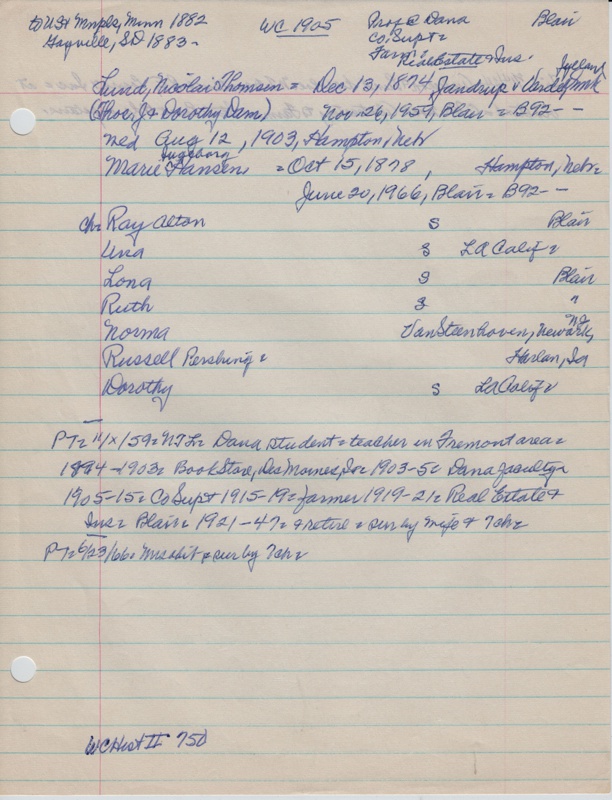 to US & Mnpls, Minn 1882 WC 1905 Prof @ Dana Blair
Gayville, SD 1883- Co Supt=
Farm=
Real Estate & Ins. Jylland
Lund, Nicolai Thomsen = Dec 13, 1874, Jandrup v Varde, Dmk
(Thos J & Dorothy Dam) Nov 26, 1959, Blair = B92--
wed Aug 12, 1903, Hampton, Nebr
Ingeborg
Marie Hansen = Oct 15, 1878, Hampton, Nebr=
June 20, 1966, Blair = B92--
ch= Ray Alton S Blair
S LA Calif=
Lona S Blair
Ruth S "
Norma VanSteenhoven, Newark, NJ
Russell Pershing= Harlan, Ia
Dorothy S LA Calif=
PT= 11/X/59= NTL= Dana student= teacher in Fremont area=
1894-1903= Book Store, Des Moines, Ia= 1903-5= Dana faculty=
1905-15= Co Supt 1915-19= farmer 1919-21= Real Estate &
Ins= Blair= 1921-47= & retire = sur by wife & 7ch=
PT= 6/23/66= Mrs obit & sur by 7ch=
WC Hist II 750